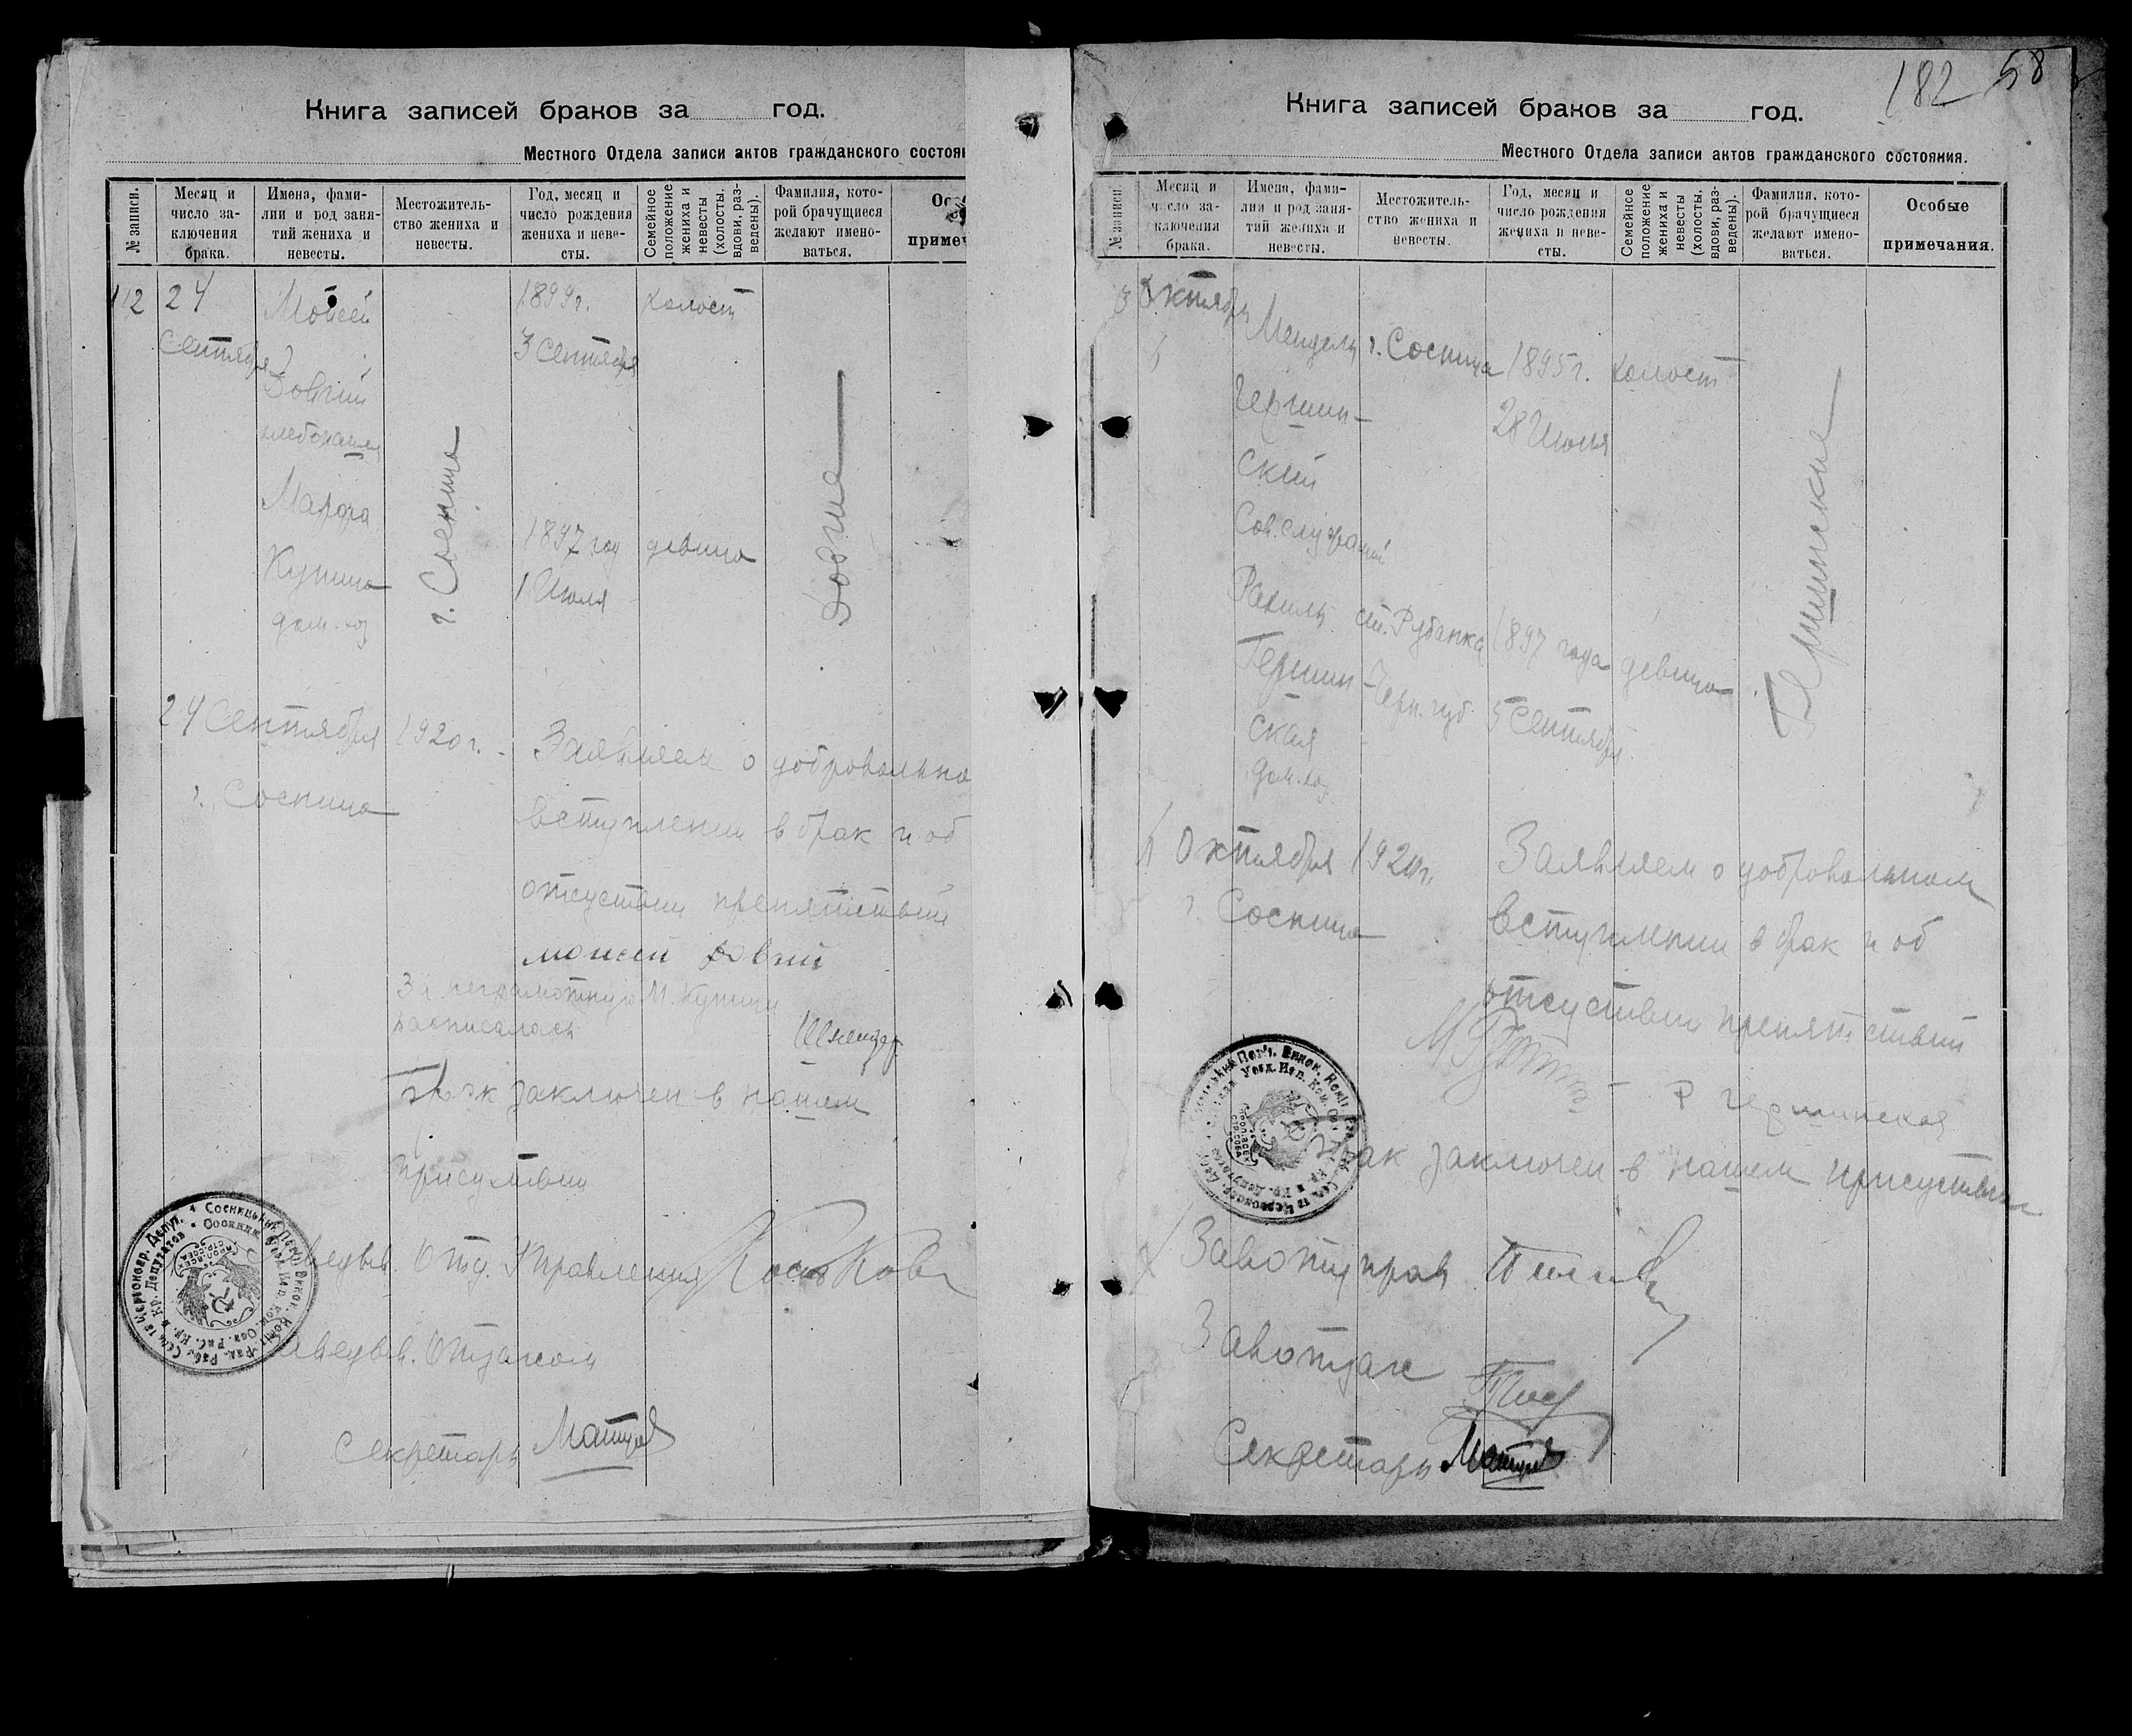 Книга записей браков за год.
Местного Отдела записи актов гражданского состоян
№ записи.
Месяц и число заключения брака.
Имена, фамилии и род занятий жениха и невесты.
Местожительство жениха и невесты.
Год, месяц и число рождения жениха и невесты.
Семейное положение жениха и невесты (холосты, вдовы, разведены).
Фамилия, которой брачущиеся желают именоваться.
примеч
112 24 Мойсей 1899 г. холост
Сентября 3 Сентября
Довгий
хлебопашец
г. Сосница
Довгие
Марфа
1897 год девица
Купина
1 Июля
дом. хоз
24 Сентября 1920 г. Заявляем о добровольно
г. Сосница вступлении в брак и об
отсуствии препятствий
моисей довгий
За неграмотную М. Купину
расписалась Шнейдер
Брак заключен в нашем
присутствии
Заведыв. Отд. Управления
Заведыв. Отдзагсом
Секретарь
182 58
Книга записей браков за год.
Местного Отдела записи актов гражданского состояния.
№ записи
Месяц и число заключения брака.
Имена, фамилии и род занятий жениха и невесты.
Местожительство жениха и невесты.
Год, месяц и число рождения жениха и невесты.
Семейное положение жениха и невесты (холосты, вдовы, разведены).
Фамилия, которой брачущиеся желают именоваться.
Особые примечания.
Октября
Мендель г. Сосница 1895 г. холост
Гершин- 28 Июня
ский
Сов. служащий
Гершинские
Рахиль ст. Рубанка 1897 года девица
Гершин- Черн. губ. 5 Сентября
ская
дом. хоз.
Октября 1920 г. Заявляем о добровольном
г. Сосница вступлении в брак и об
отсуствии препятствий
Р Гершинская
Брак заключен в нашем присуствии
Завотдуправ
Завотдзагс
Секретарь